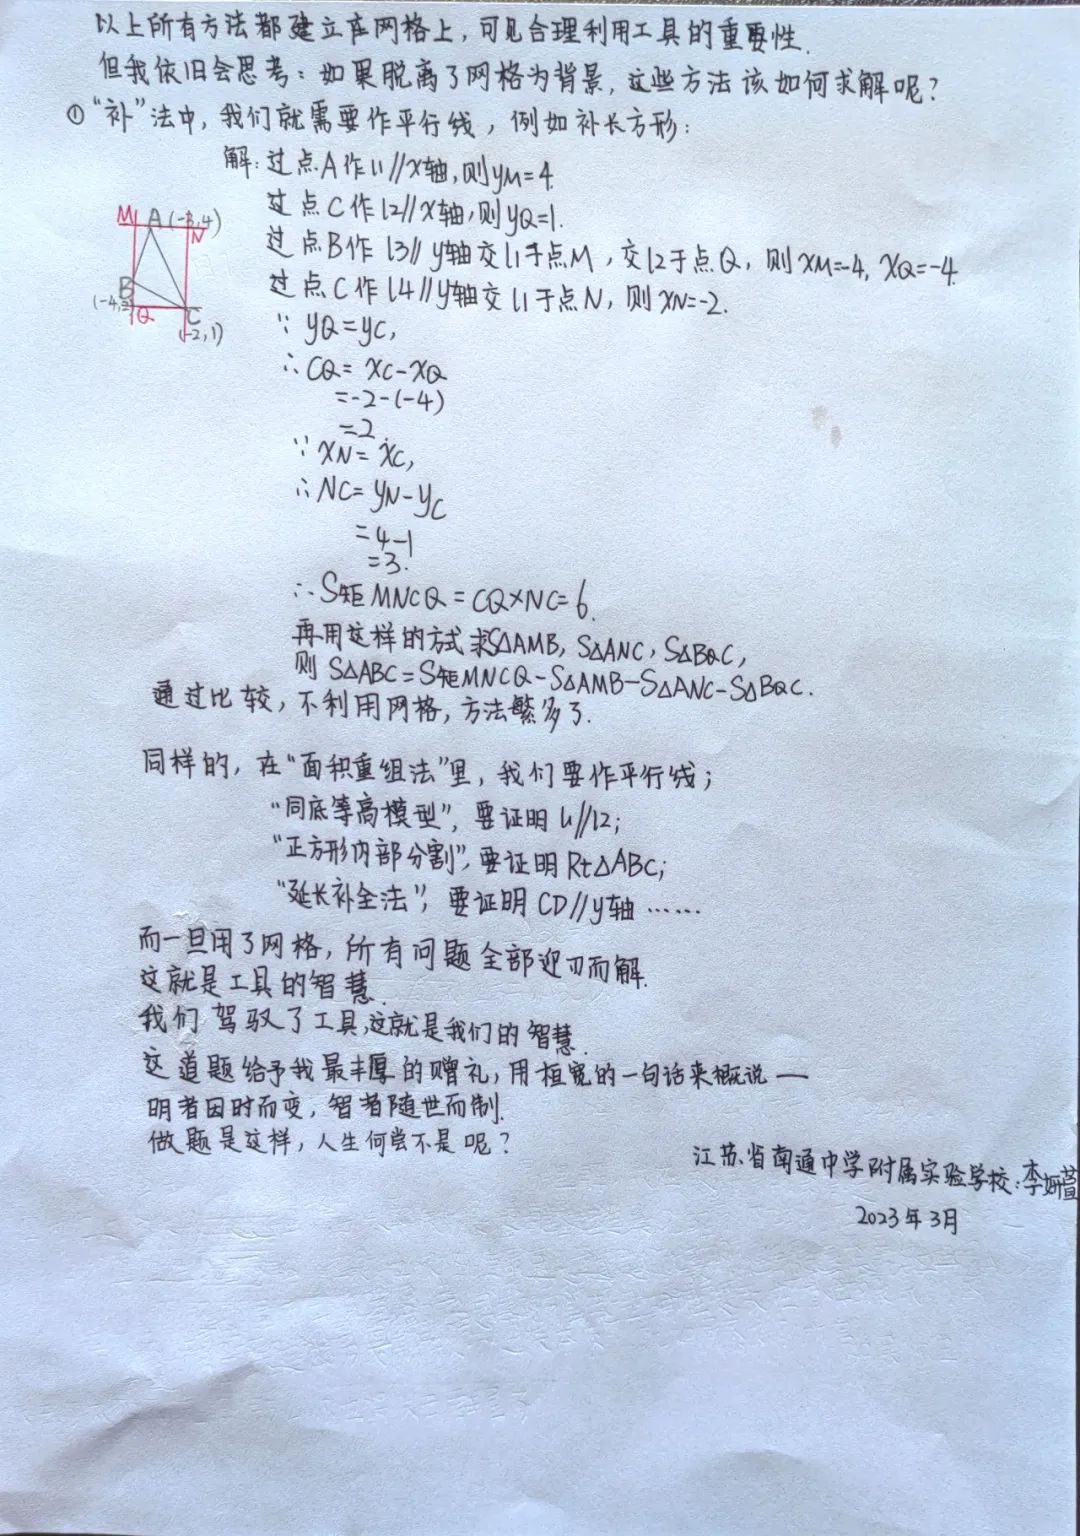 以上所有方法都建立在网格上，可见合理利用工具的重要性.
但我依旧会思考：如果脱离了网格为背景，这些方法该如何求解呢？
①“补”法中，我们就需要作平行线，例如补长方形：
解：过点A作l1//x轴，则yM=4.
过点C作l2//x轴，则yQ=1.
过点B作l3//y轴交l1于点M，交l2于点Q，则xM=-4，xQ=-4.
过点C作l4//y轴交l1于点N，则xN=-2.
M A(-3,4)
N
B
(-4,2)
Q C
(-2,1)
∵ yQ=yC，
∴CQ= xC-xQ
=-2-(-4)
=2
∵xN=xC，
∴NC=yN-yC
=4-1
=3.
∴S矩MNCQ=CQ×NC=6.
再用这样的方式求S△AMB，S△ANC，S△BQC，
则 S△ABC=S矩MNCQ-S△AMB-S△ANC-S△BQC.
通过比较，不利用网格，方法繁多了.
同样的，在“面积重组法”里，我们要作平行线；
“同底等高模型”，要证明l1//l2；
“正方形内部分割”，要证明Rt△ABC；
“延长补全法”，要证明CD//y轴……
而一旦用了网格，所有问题全部迎刃而解.
这就是工具的智慧.
我们驾驭了工具，这就是我们的智慧.
这道题给予我最丰厚的赠礼，用桓宽的一句话来概说——
明者因时而变，智者随世而制.
做题是这样，人生何尝不是呢？
江苏省南通中学附属实验学校：李妍萱
2023年3月